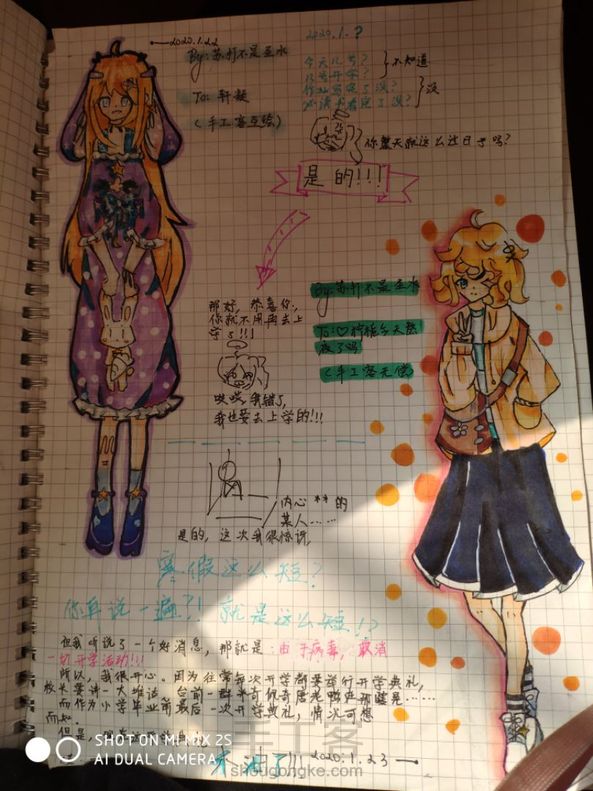 2020.1.22
By:苏打不是亚水
To:轩凝
(手工客互绘)
2020.1.?
今天几号?
几号开学?
作业写完了没?
必读书看完了没?
不知道
没
你整天就这么过日子吗?
是的!!!
那好,恭喜你,
你就不用再去上
学了!!!
哎哎,我错了,
我也要去上学的!!!
By:苏打不是亚水
To:♡柠栀今天熬
夜了吗
(手工客无偿
内心**的
某人……
是的,这次我很惊讶,
寒假这么短?
你再说一遍?! 就是这么短!?
但我听说了一个好消息,那就是:由于病毒,取消
一切开学活动!!!
所以,我很开心。因为往常每次开学都要举行开学典礼,
校长要讲一大堆话。台前一群
而作为小学毕业前最后一次开学典礼,情况可想
而知。
但是,
2020.1.23
SHOT ON MI MIX 2S
AI DUAL CAMERA
手工客
shougongke.com